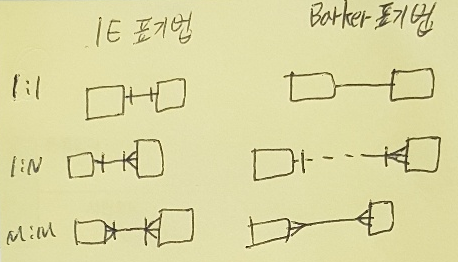 IE 표기법 Barker 표기법
1:1
1:N
M:M